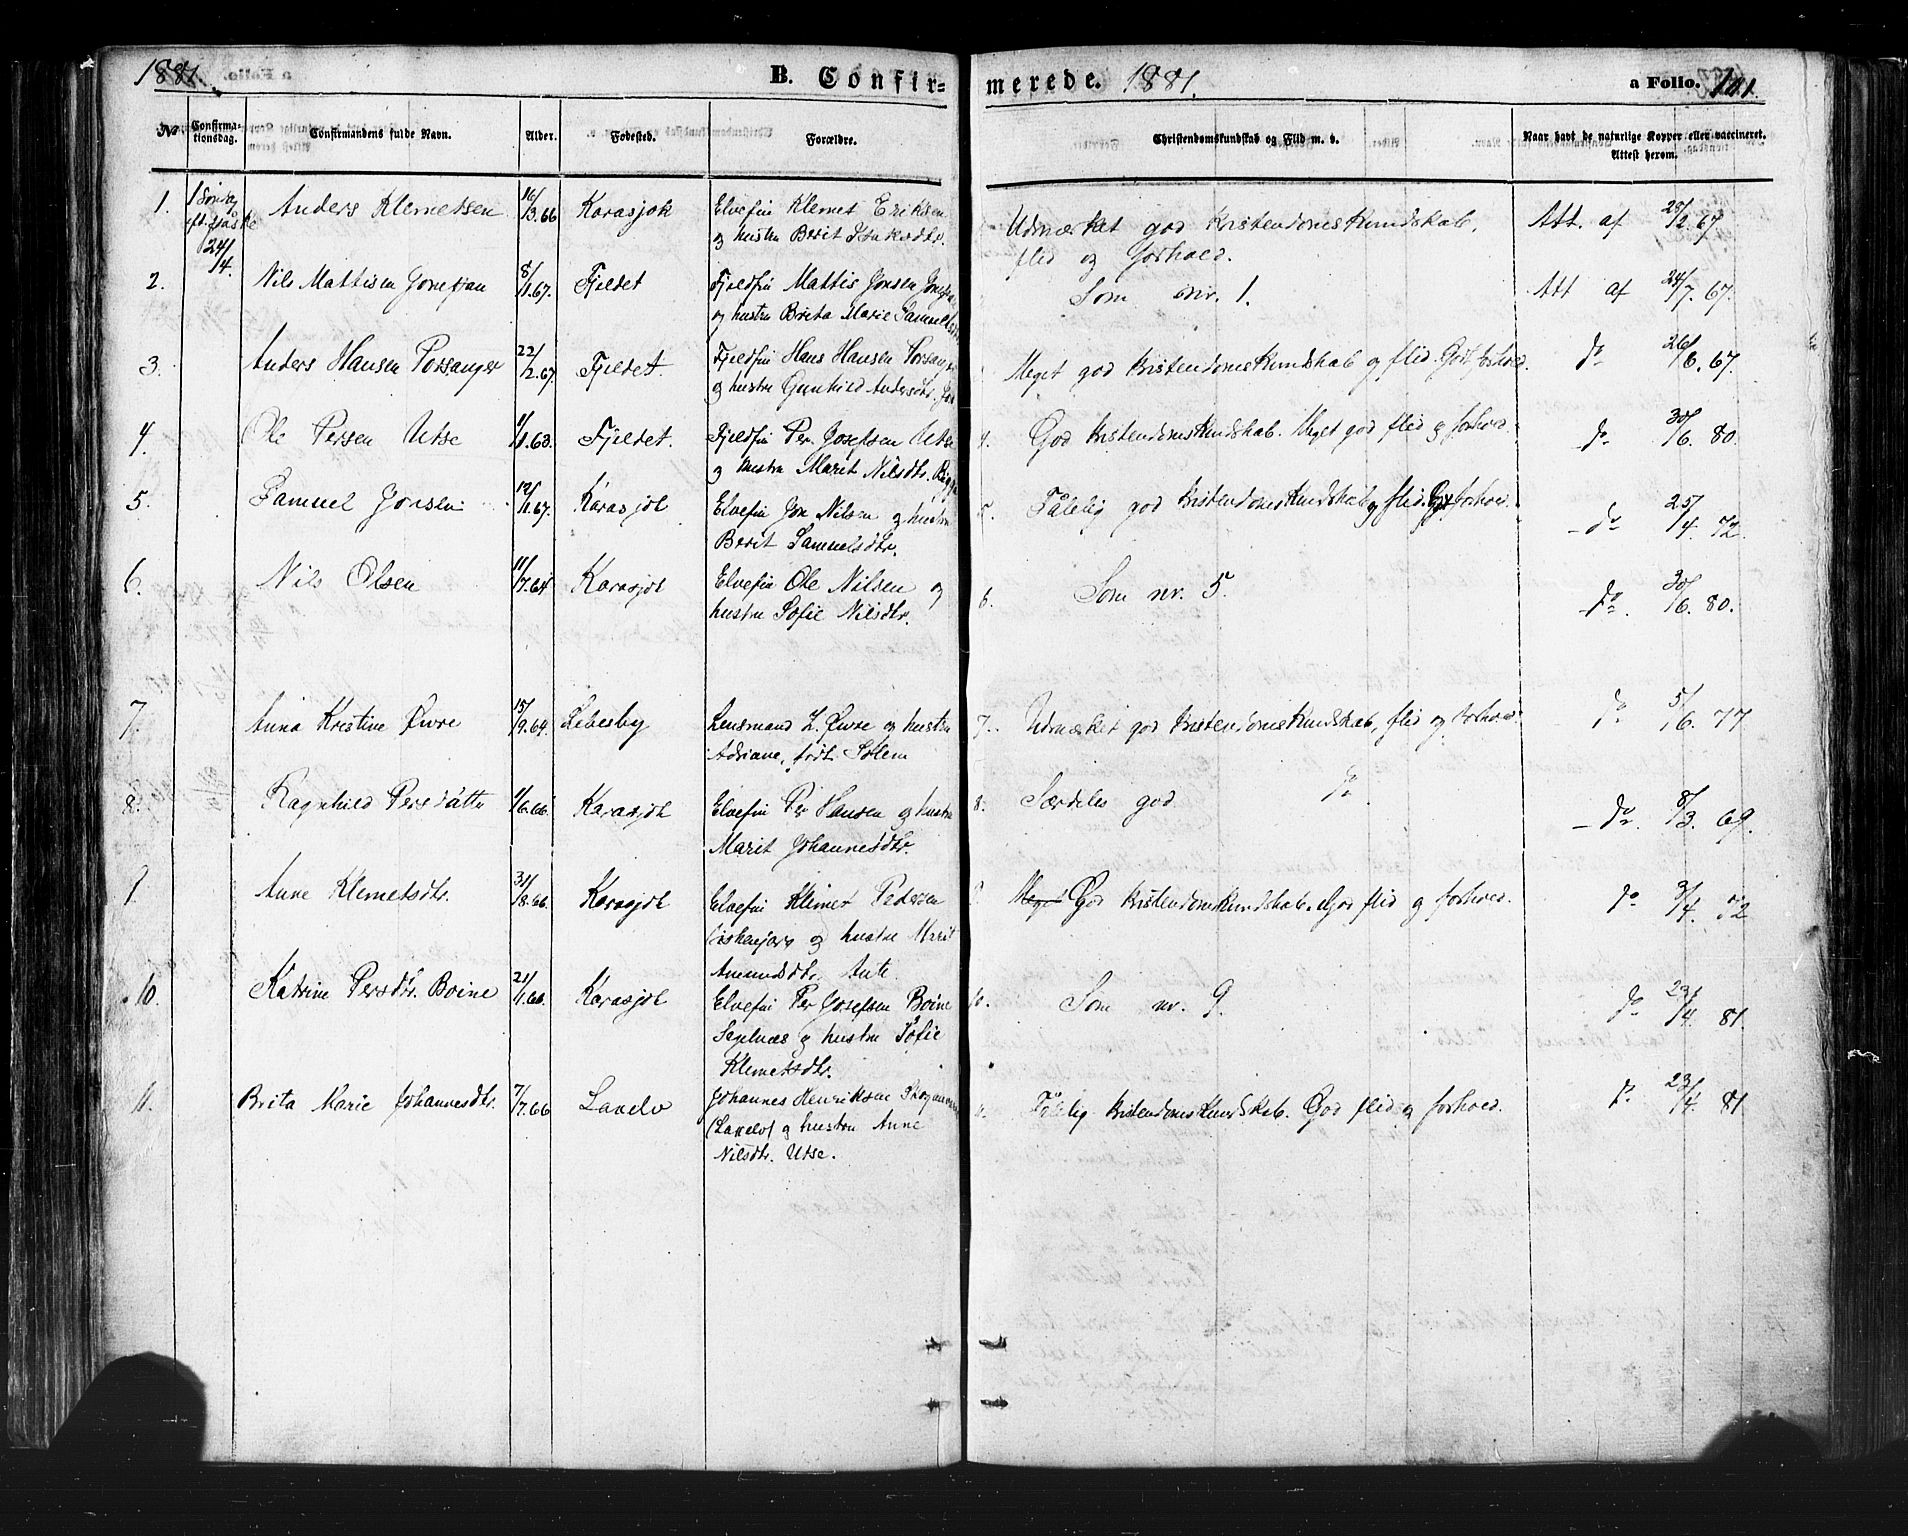 1881.
B. Confir-
merede. 1881.
a Folio. 101.
No
Confirma-
tionsdag.
Confirmandens fulde Navn.
Alder.
Fødested.
Forældre.
Christendomskundskab og Flid m. v.
Naar havt de naturlige Kopper eller vaccineret.
Attest herom.
1. 1 Sønda Anders Klemetsen 16/3.66 Karasjok Elvefin Klemet Eriksen
ft. Påske og hustru Berit
24/4.
Udmærket god kristendomskundskab,
flid og forhold.
Att. af 25/2 67
2. Nils Mattisen 8/1.67. Fjeldet Fjeldfin Mattis Jonsen
og hustru Brita Marie
Som nr. 1. Att af 24/7. 67.
3. Anders Hansen Porsanger 22/2.67. Fjeldet. Fjeldfin Hans Hansen Porsanger
og hustru Gunhild Andersdtr.
Meget god kristendomskundskab og flid. Godt forhold. do 26/6. 67.
4. Ole Persen Utse 1/1.63. Fjeldet. Fjeldfin Per Josefsen Utse
og hustru Marit Nilsdtr.
4. God kristendomskundskab. Meget god flid og forhold. do 30/6. 80.
5. Samuel Jonsen 12/1.67. Karasjok Elvefin Jon Nilsen og hustru
Berit Samuelsdtr.
5. Tålelig god kristendomskundskab og flid. forhold. do 25/4. 72.
6. Nils Olsen 11/7.64 Karasjok Elvefin Ole Nilsen og
hustru Sofie Nilsdtr.
6. Som nr. 5. do. 30/6. 80.
7. Anna Kristine Øvre 15/9.64. Lebesby Lensmand L. Øvre og hustru
Adriane, født Solem
7. Udmærket god kristendomskundskab, flid og forhold do 5/6. 77
8. Ragnhild Persdatter 1/6.66. Karasjok Elvefin Per Hansen og hustru
Marit Johannesdtr.
8. Særdeles god do do. 8/3. 69.
9. Anne Klemetsdtr. 31/8.66. Karasjok Elvefin Klemet Pedersen
og hustru Marit
Amundsdtr. Ante
9. Meget God kristendomskundskab. God flid og forhold. do 3/4. 72
10. Katrine Persdtr. Boine 21/1.66. Karasjok Elvefin Per Josefsen Boine
og hustru Sofie
Klemetsdtr.
10. Som nr. 9. do 23/4. 81.
11. Brita Marie Johannesdtr. 7/7.66 Laxelv Johannes Henriksen
(Laxelv) og hustru Anne
Nilsdtr. Utse.
11. Tålelig kristendomskundskab. God flid og forhold. do 23/4. 81